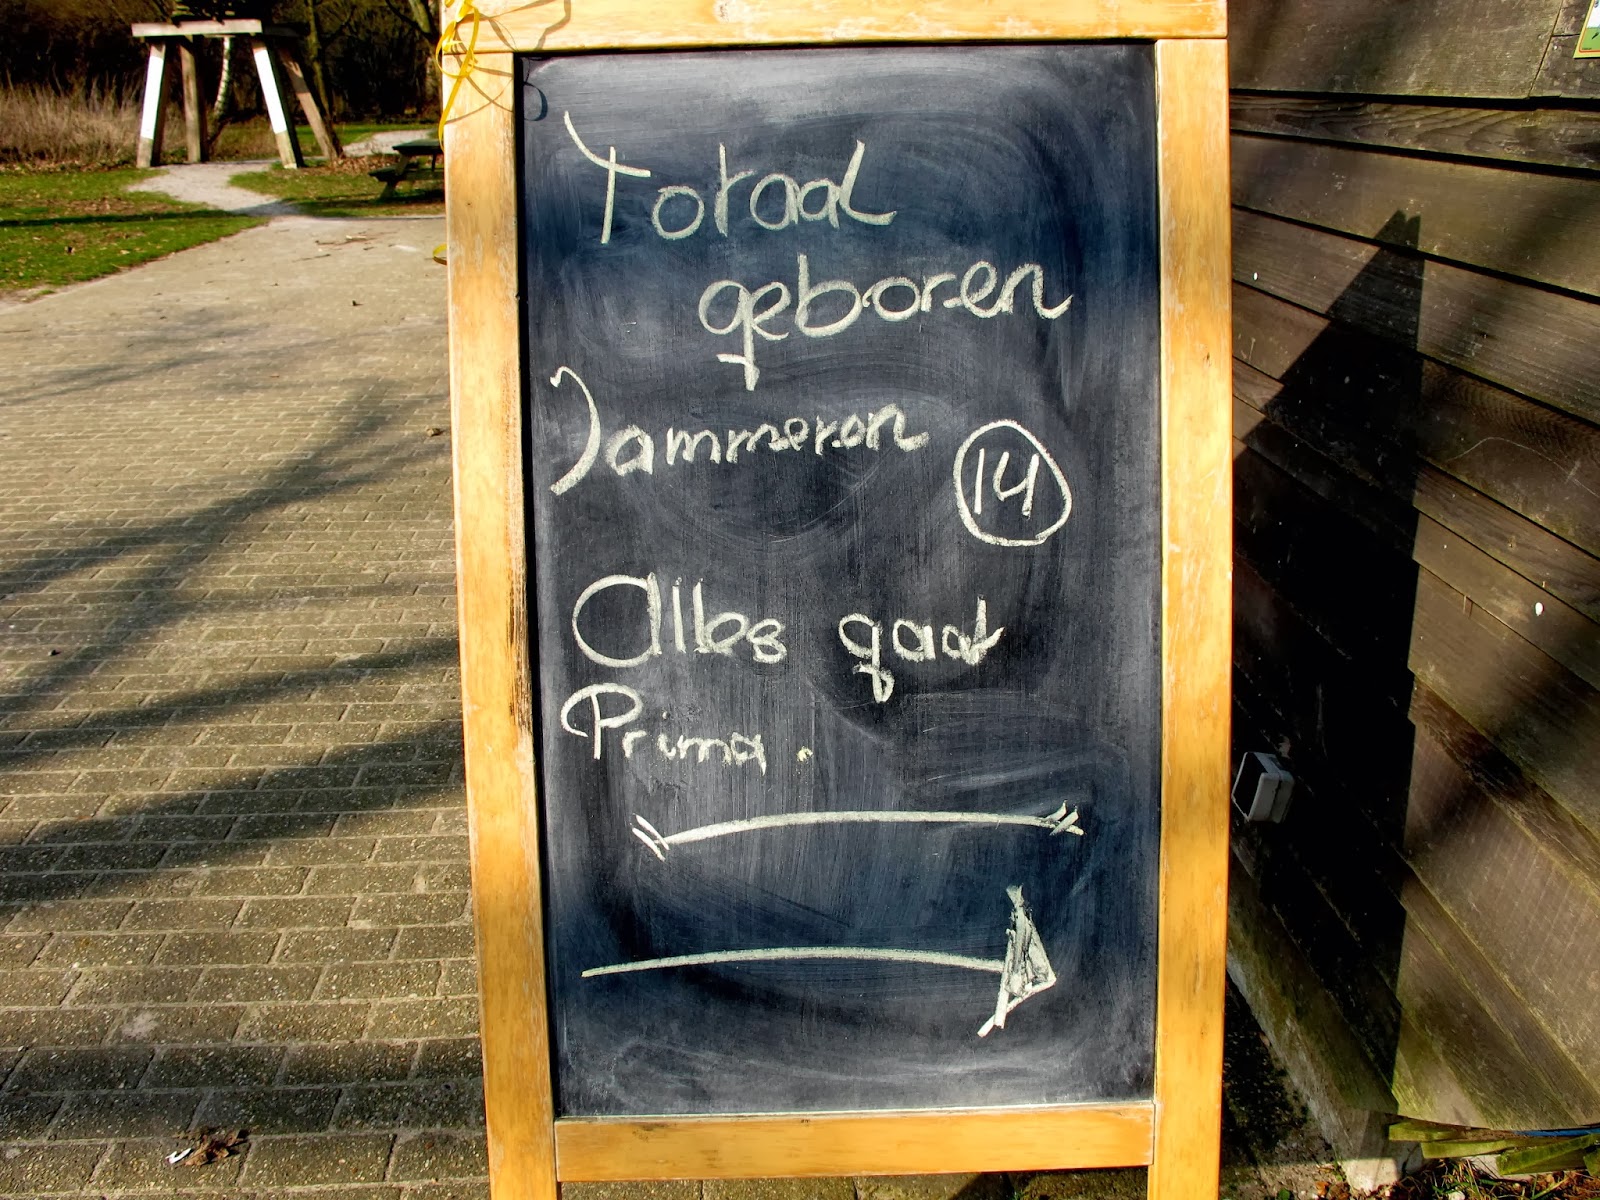 Totaal
geboren
Jammeren
14
Alles gaat
Prima.